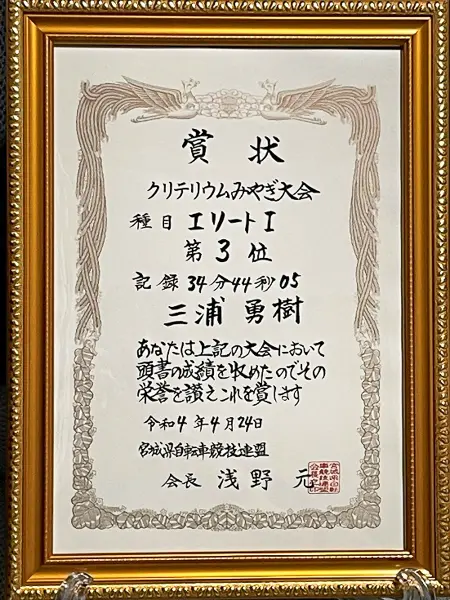 賞状
クリテリウムみやぎ大会
種目 エリートI
第3位
記録 34分44秒05
三浦 勇樹
あなたは上記の大会において
頭書の成績を収めたのでその
栄誉を讃えこれを賞します
令和4年4月24日
宮城県自転車競技連盟
会長 浅野 元